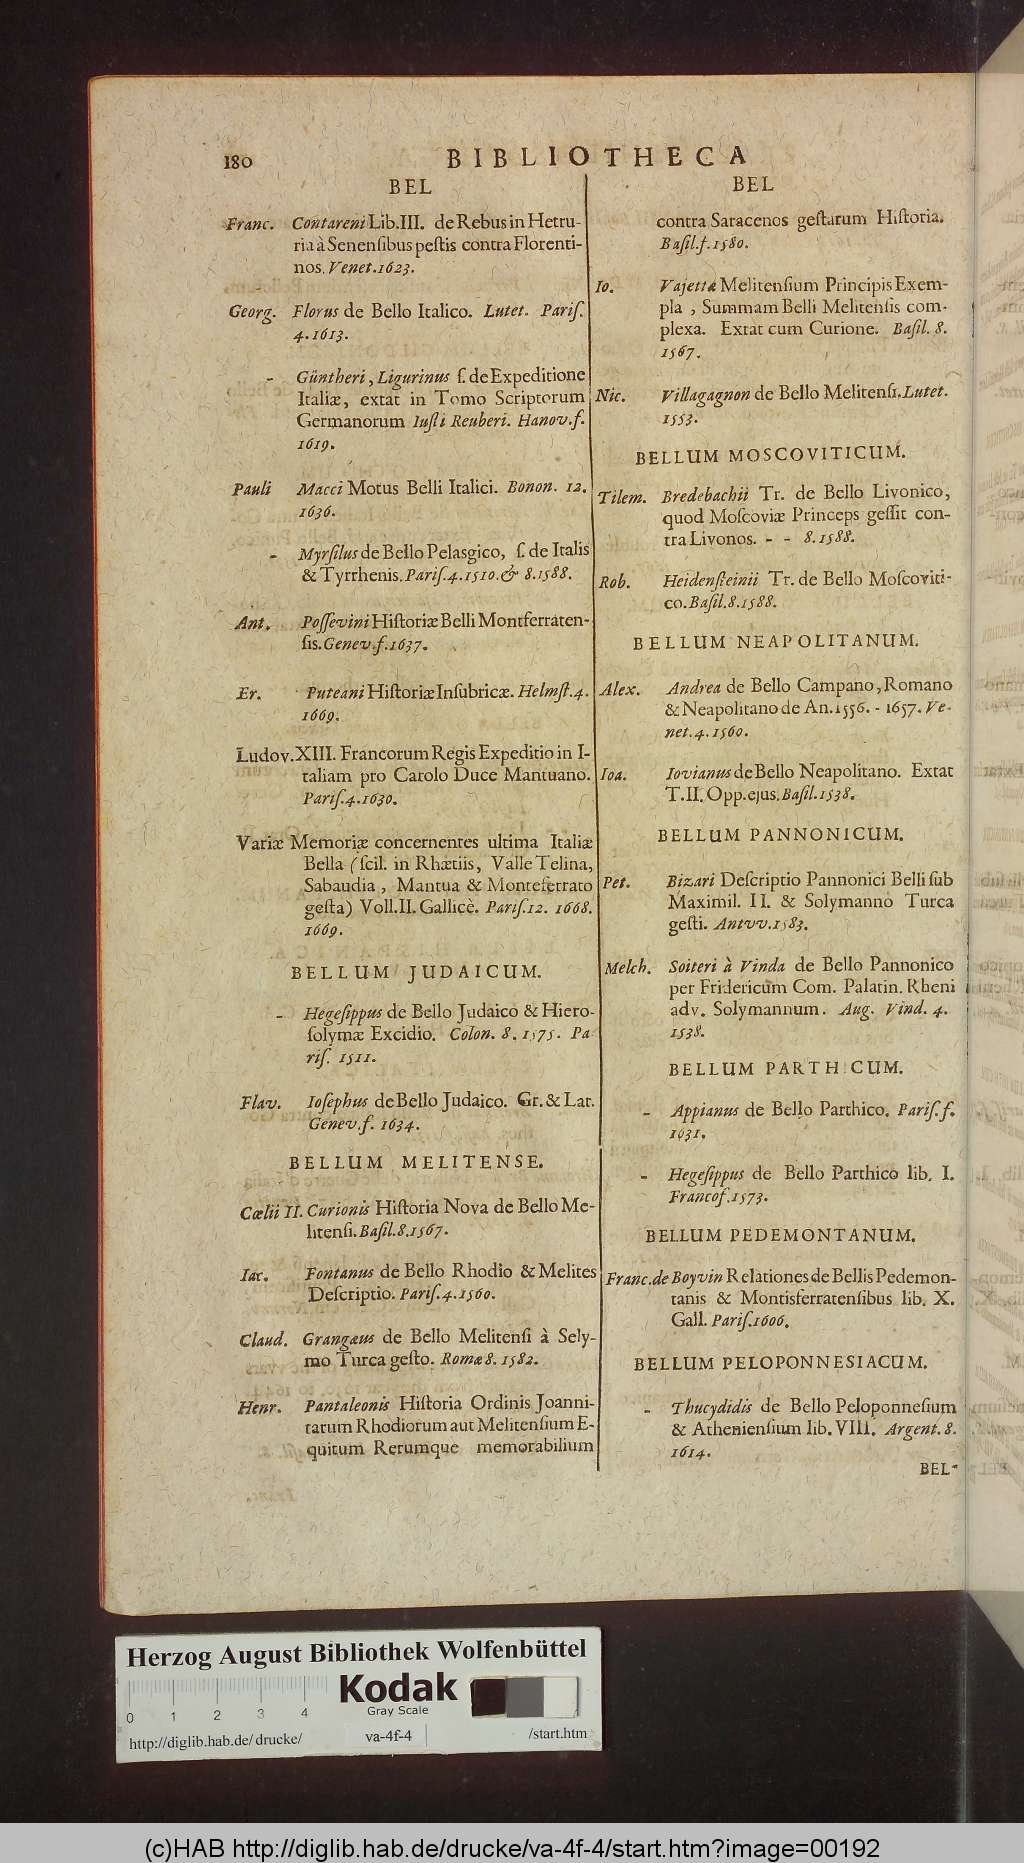 180
BIBLIOTHECA
BEL
Franc. Contareni Lib. III. de Rebus in Hetru-
ria à Senenſibus peſtis contra Florenti-
nos. Venet. 1623.
Georg. Florus de Bello Italico. Lutet. Pariſ.
4. 1613.
- Güntheri, Ligurinus ſ. de Expeditione
Italiæ, extat in Tomo Scriptorum
Germanorum Iuſti Reuberi. Hanov. f.
1619.
Pauli Macci Motus Belli Italici. Bonon. 12.
1636.
- Myrſilus de Bello Pelasgico, ſ. de Italis
& Tyrrhenis. Pariſ. 4. 1510. & 8. 1588.
Ant. Poſſevini Hiſtoriæ Belli Montferraten-
ſis. Genev. f. 1637.
Er. Puteani Hiſtoriæ Inſubricæ. Helmſt. 4.
1669.
Ludov. XIII. Francorum Regis Expeditio in I-
taliam pro Carolo Duce Mantuano.
Pariſ. 4. 1630.
Variæ Memoriæ concernentes ultima Italiæ
Bella (ſcil. in Rhætiis, Valle Telina,
Sabaudia, Mantua & Monteferrato
geſta) Voll. II. Gallicè. Pariſ. 12. 1668.
1669.
BELLUM JUDAICUM.
- Hegeſippus de Bello Judaico & Hiero-
ſolymæ Excidio. Colon. 8. 1575. Pa
riſ. 1511.
Flav. Ioſephus de Bello Judaico. Gr. & Lat.
Genev. f. 1634.
BELLUM MELITENSE.
Cœlii II. Curionis Hiſtoria Nova de Bello Me-
litenſi. Baſil. 8. 1567.
Iac. Fontanus de Bello Rhodio & Melites
Deſcriptio. Pariſ. 4. 1560.
Claud. Grangæus de Bello Melitenſi à Sely-
mo Turca geſto. Romæ 8. 1582.
Henr. Pantaleonis Hiſtoria Ordinis Joanni-
tarum Rhodiorum aut Melitenſium E-
quitum Rerumque memorabilium
BEL
contra Saracenos geſtarum Hiſtoria.
Baſil. f. 1580.
Io. Vajettæ Melitenſium Principis Exem-
pla, Summam Belli Melitenſis com-
plexa. Extat cum Curione. Baſil. 8.
1567.
Nic. Villagagnon de Bello Melitenſi. Lutet.
1553.
BELLUM MOSCOVITICUM.
Tilem. Bredebachii Tr. de Bello Livonico,
quod Moſcoviæ Princeps geſſit con-
tra Livonos. - - 8. 1588.
Rob. Heidenſteinii Tr. de Bello Moſcoviti-
co. Baſil. 8. 1588.
BELLUM NEAPOLITANUM.
Alex. Andrea de Bello Campano, Romano
& Neapolitano de An. 1556. - 1657. Ve-
net. 4. 1560.
Ioa. Iovianus de Bello Neapolitano. Extat
T. II. Opp. ejus. Baſil. 1538.
BELLUM PANNONICUM.
Pet. Bizari Deſcriptio Pannonici Belli ſub
Maximil. II. & Solymanno Turca
geſti. Antvv. 1583.
Melch. Soiteri à Vinda de Bello Pannonico
per Fridericum Com. Palatin. Rheni
adv. Solymannum. Aug. Vind. 4.
1538.
BELLUM PARTHICUM.
- Appianus de Bello Parthico. Pariſ. f.
1631.
- Hegeſippus de Bello Parthico lib. I.
Francof. 1573.
BELLUM PEDEMONTANUM.
Franc. de Boyvin Relationes de Bellis Pedemon-
tanis & Montisferratenſibus lib. X.
Gall. Pariſ. 1606.
BELLUM PELOPONNESIACUM.
- Thucydidis de Bello Peloponneſium
& Athenienſium lib. VIII. Argent. 8.
1614.
BEL-
Herzog August Bibliothek Wolfenbüttel
Kodak
Gray Scale
0 1 2 3 4
http://diglib.hab.de/drucke/ va-4f-4 /start.htm
(c)HAB http://diglib.hab.de/drucke/va-4f-4/start.htm?image=00192